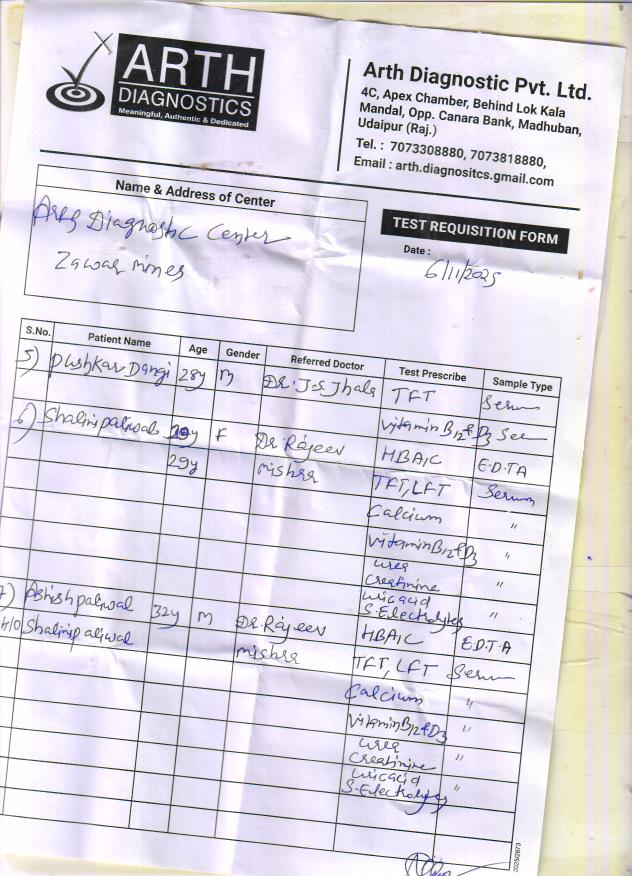 ARTH
DIAGNOSTICS
Meaningful, Authentic & Dedicated
Arth Diagnostic Pvt. Ltd.
4C, Apex Chamber, Behind Lok Kala
Mandal, Opp. Canara Bank, Madhuban,
Udaipur (Raj.)
Tel. : 7073308880, 7073818880,
Email : arth.diagnositcs.gmail.com
Name & Address of Center
Arth Diagnostic Center
Zawar mines
TEST REQUISITION FORM
Date :
6/11/2025
S.No. Patient Name Age Gender Referred Doctor Test Prescribe Sample Type
5) Pushkar Dangi 28y M Dr. J.S Jhala TFT Serum
vitamin B12 & D3
6) Shalini paliwal F Dr. Rajeev HBAIC E.D.T.A
29y mishra TFT, LFT Serum
Calcium "
vitamin B12 & D3 "
urea
creatinine "
uric acid
S. Electrolytes "
7) Ashish paliwal 32y M Dr. Rajeev HBAIC E.D.T.A
H/O Shalini paliwal mishra TFT, LFT Serum
Calcium "
vitamin B12 & D3 "
urea
creatinine "
uric acid
S. Electrolytes "
2025/2873